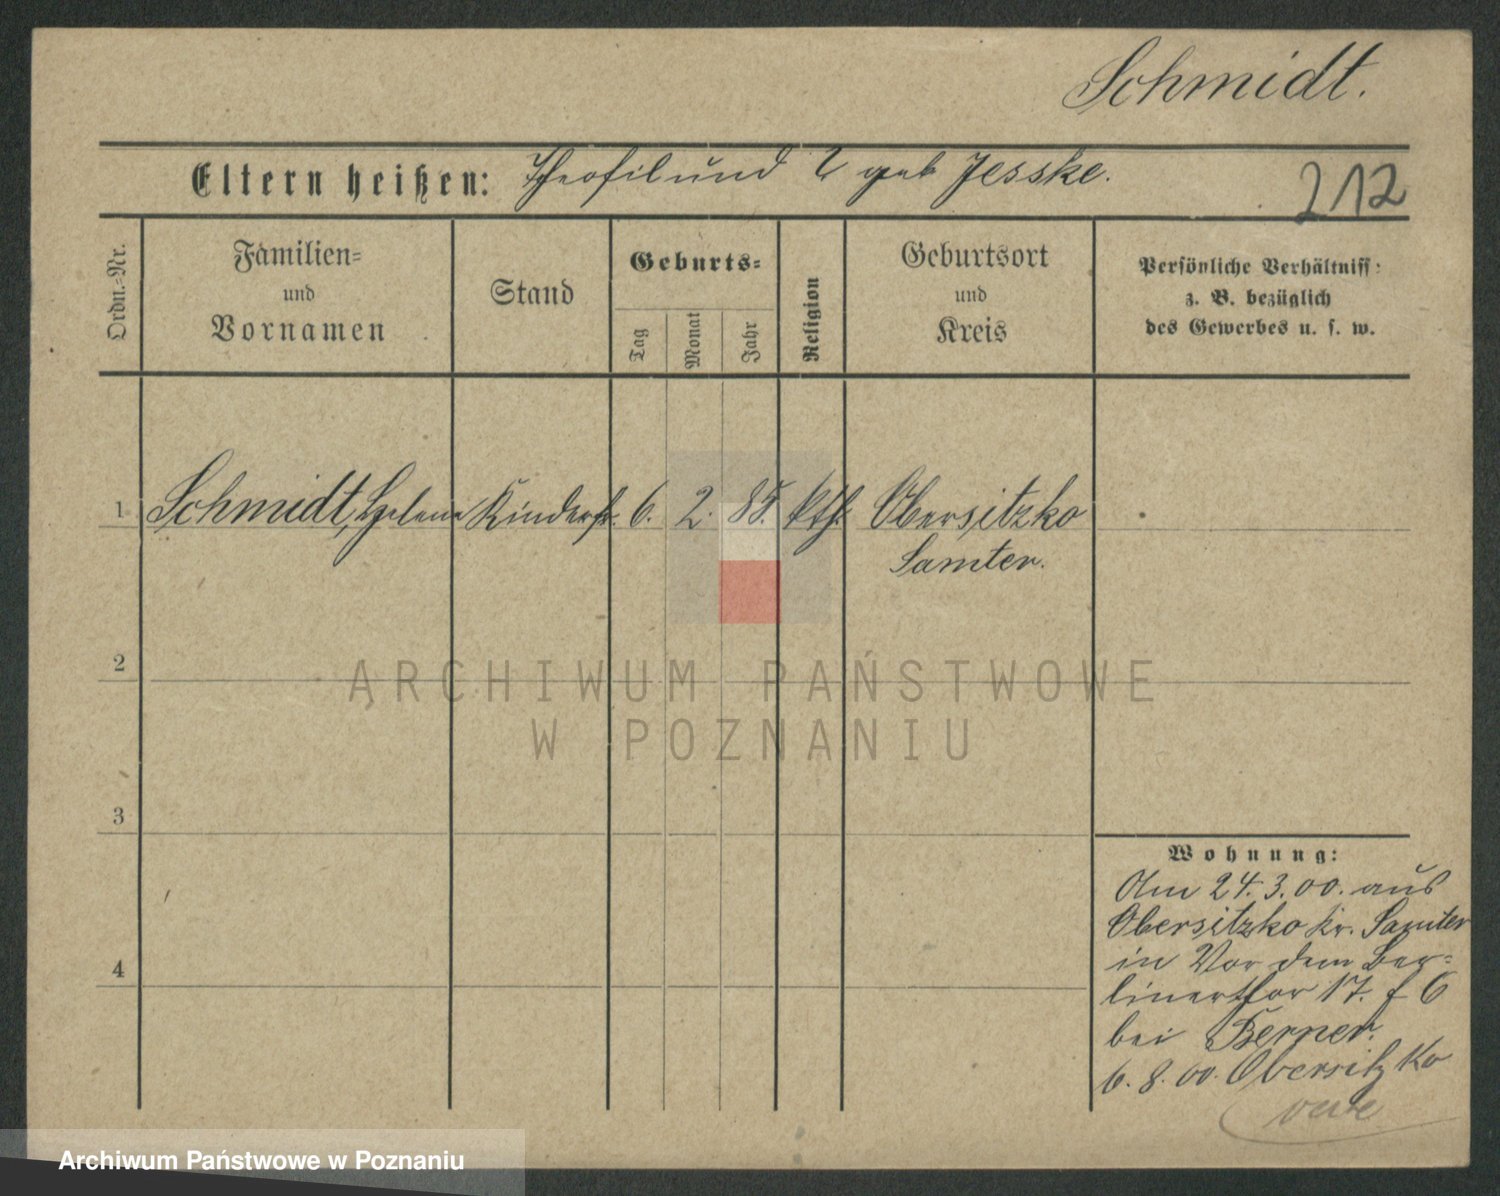 Schmidt.
Eltern heißen: Theofil und ? geb Jesske.
212
Ordn.-Nr.
Familien-
und
Vornamen
Stand
Geburts-
Tag
Monat
Jahr
Religion
Geburtsort
und
Kreis
Persönliche Verhältniss:
z. B. bezüglich
des Gewerbes u. s. w.
1 Schmidt, Helene Kinderfr. 6. 2. 85. kth. Obersitzko
Samter.
2
3
4
Wohnung:
Am 24.3.00. aus
Obersitzko Kr. Samter
in Vor dem Ber-
linerthor 17. f 6
bei Berner.
6.8.00. Obersitzko
ARCHIWUM PAŃSTWOWE
W POZNANIU
Archiwum Państwowe w Poznaniu